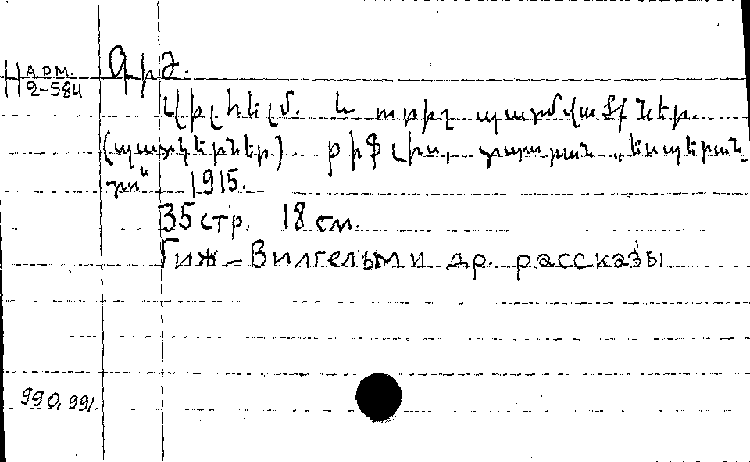 Н АРМ. Գիժ.
2-584
Վիլհելմ. և ուրիշ պատմվածքներ.
(պատկերներ) թիֆլիս, տպարան „Էսպերան-
տօ" 1915.
35 стр. 18 см.
Гиж – Вилгельм и др. рассказы
990,991